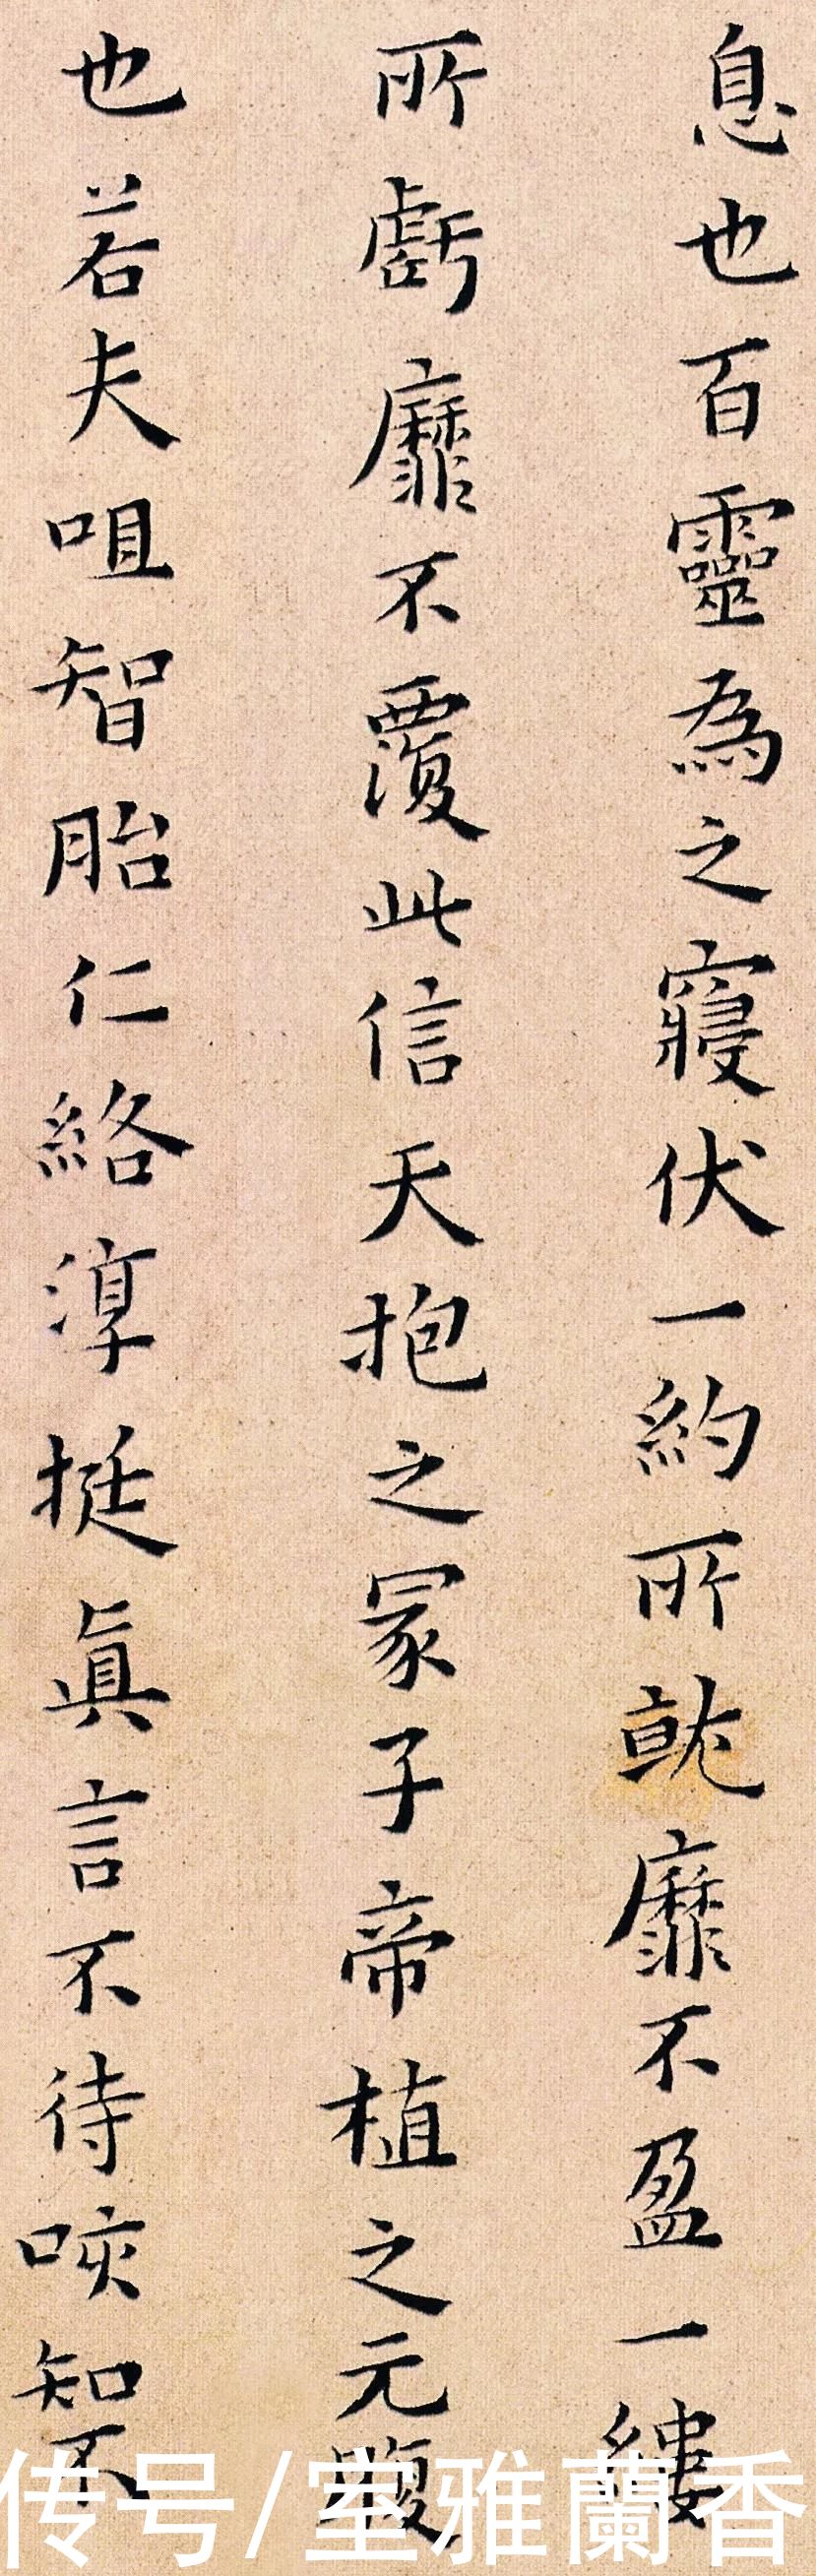 息也百靈為之寢伏一約所就靡不盈一縷
所虧靡不覆此信天抱之冢子帝植之元腹
也若夫咀智胎仁絡淳挺眞言不待咳知不
传号/室雅蘭香